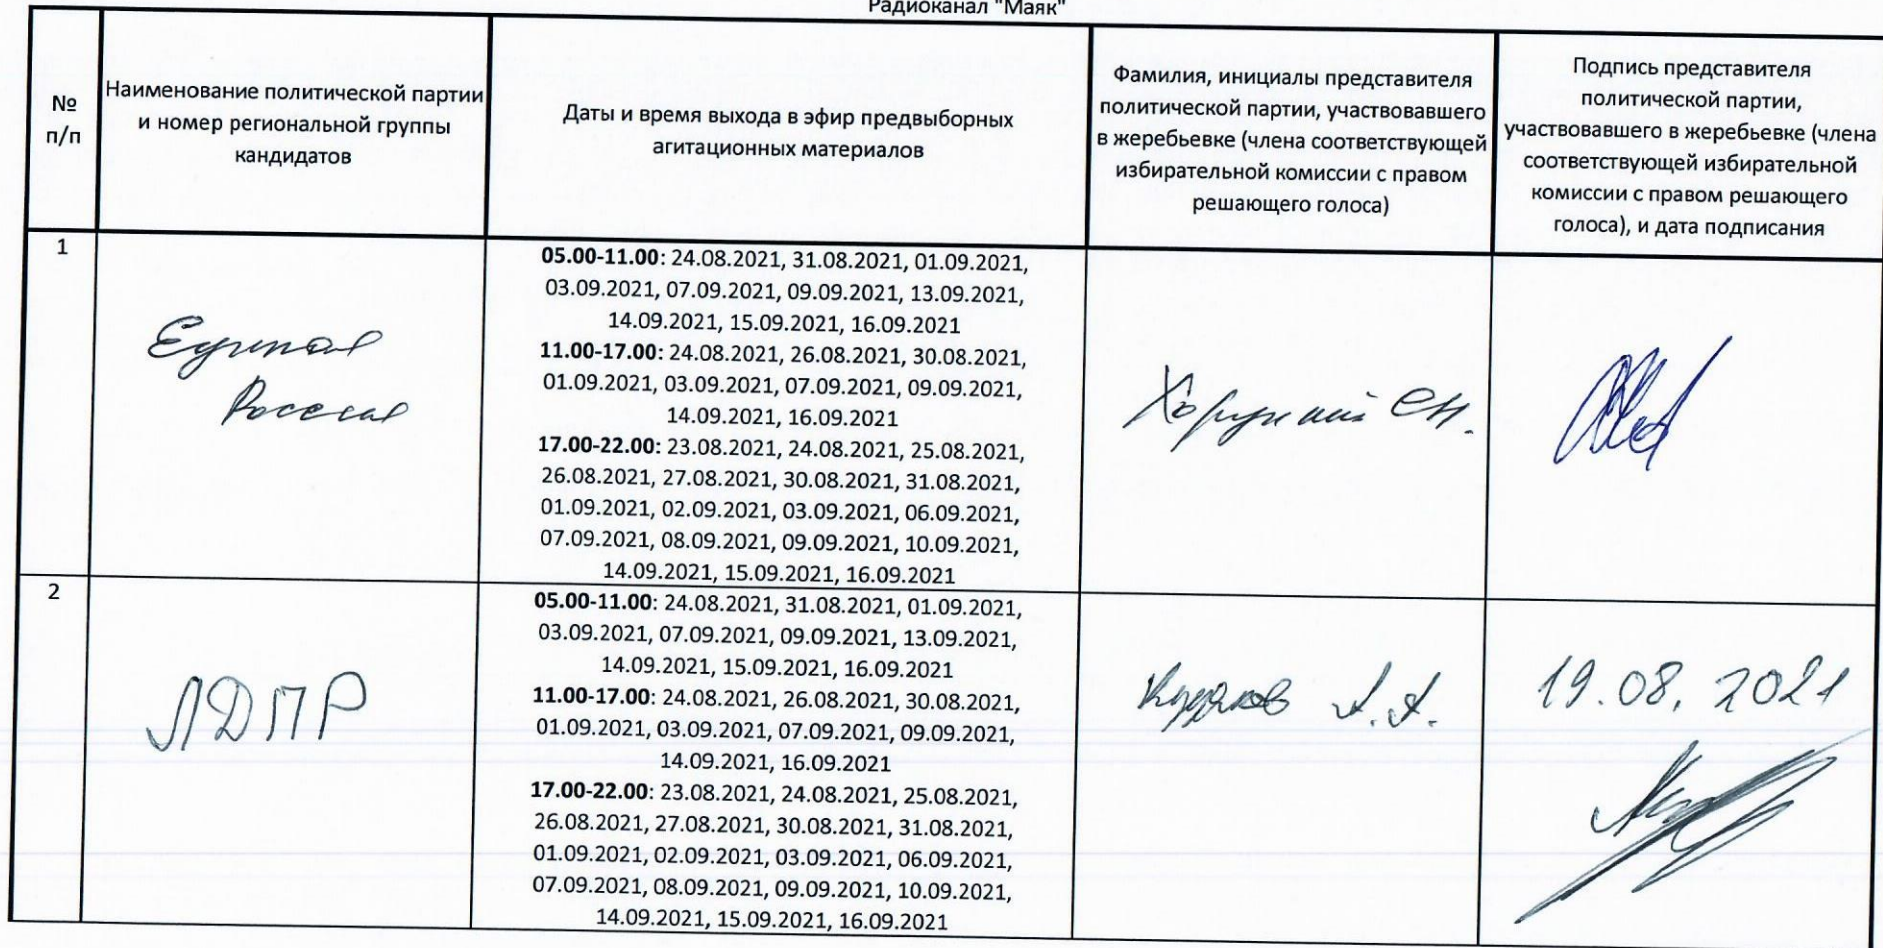 Радиоканал "Маяк"
№
п/п
Наименование политической партии
и номер региональной группы
кандидатов
Даты и время выхода в эфир предвыборных
агитационных материалов
Фамилия, инициалы представителя
политической партии, участвовавшего
в жеребьевке (члена соответствующей
избирательной комиссии с правом
решающего голоса)
Подпись представителя
политической партии,
участвовавшего в жеребьевке (члена
соответствующей избирательной
комиссии с правом решающего
голоса), и дата подписания
1
Единая
Россия
05.00-11.00: 24.08.2021, 31.08.2021, 01.09.2021,
03.09.2021, 07.09.2021, 09.09.2021, 13.09.2021,
14.09.2021, 15.09.2021, 16.09.2021
11.00-17.00: 24.08.2021, 26.08.2021, 30.08.2021,
01.09.2021, 03.09.2021, 07.09.2021, 09.09.2021,
14.09.2021, 16.09.2021
17.00-22.00: 23.08.2021, 24.08.2021, 25.08.2021,
26.08.2021, 27.08.2021, 30.08.2021, 31.08.2021,
01.09.2021, 02.09.2021, 03.09.2021, 06.09.2021,
07.09.2021, 08.09.2021, 09.09.2021, 10.09.2021,
14.09.2021, 15.09.2021, 16.09.2021
2
ЛДПР
05.00-11.00: 24.08.2021, 31.08.2021, 01.09.2021,
03.09.2021, 07.09.2021, 09.09.2021, 13.09.2021,
14.09.2021, 15.09.2021, 16.09.2021
11.00-17.00: 24.08.2021, 26.08.2021, 30.08.2021,
01.09.2021, 03.09.2021, 07.09.2021, 09.09.2021,
14.09.2021, 16.09.2021
17.00-22.00: 23.08.2021, 24.08.2021, 25.08.2021,
26.08.2021, 27.08.2021, 30.08.2021, 31.08.2021,
01.09.2021, 02.09.2021, 03.09.2021, 06.09.2021,
07.09.2021, 08.09.2021, 09.09.2021, 10.09.2021,
14.09.2021, 15.09.2021, 16.09.2021
А.А.
19.08.2021